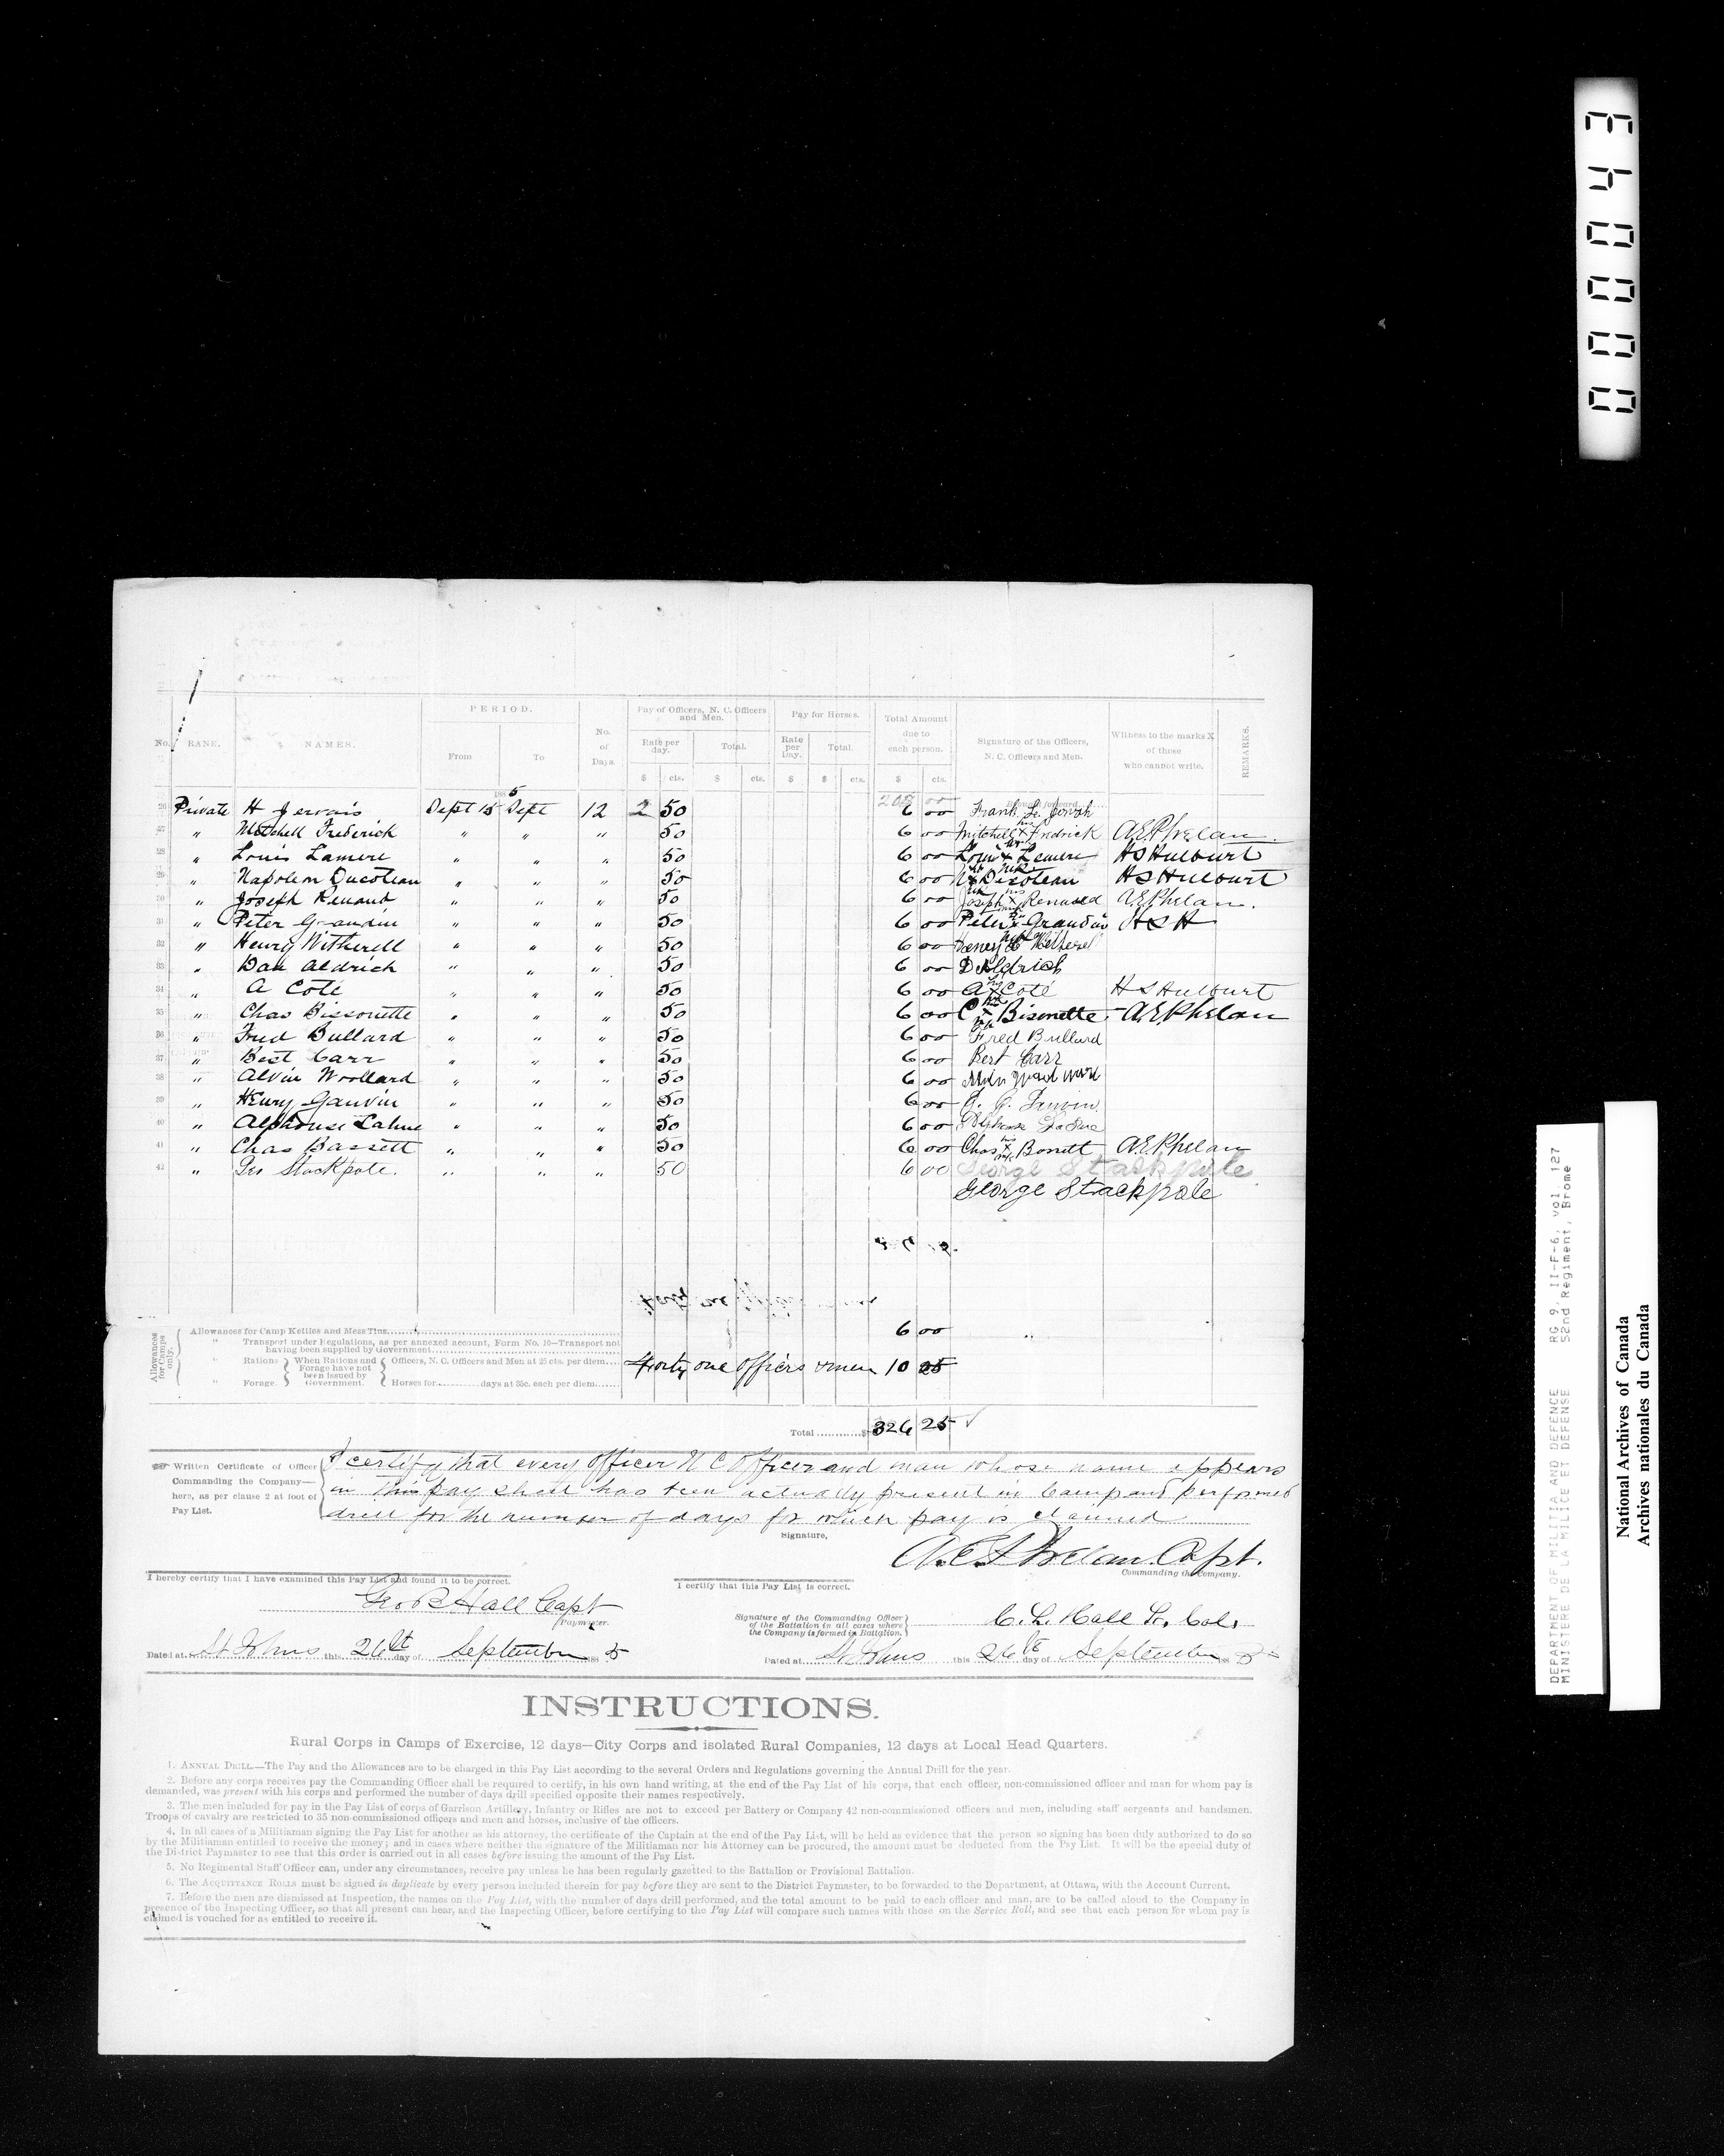 PERIOD.
Pay of Officers, N. C. Officers and Men.
Pay for Horses.
Total Amount due to each person.
Signature of the Officers, N. C. Officers and Men.
Witness to the marks X of those who cannot write.
REMARKS.
No. RANK. NAMES. From To No. of Days.
Rate per day. Total. Rate per Day. Total.
$ cts. $ cts. $ $ cts. $ cts.
1885
26 Private H Jervais Sept 15 Sept 12 2 50 6 00
27 " Mitchell Frederick " " " 50 6 00 Mitchell his x Fredrick A.E. Phelan
28 " Louis Lamere " " " 50 6 00 Louis x Lemere H S Hulburt
29 " Napoleon Ducoteau " " " 50 6 00 N x Ducoteau H S Hulburt
30 " Joseph Renaud " " " 50 6 00 Joseph his x Renaud A.E. Phelan.
31 " Peter Grandin " " " 50 6 00 Peter x Grandin H S H
32 " Henry Witherell " " " 50 6 00 Henry
33 " Dan Aldrich " " " 50 6 00 D Aldrich
34 " A Coté " " " 50 6 00 A his x Coté H S Hulburt
35 " Chas Bissonette " " " 50 6 00 C his x Bisonette A.E. Phelan
36 " Fred Bullard " " " 50 6 00 Fred Bullard
37 " Bert Carr " " " 50 6 00 Bert Carr
38 " Alvin Woollard " " " 50 6 00
39 " Henry Gauvin " " " 50 6 00
40 " Alphonse Lahue " " " 50 6 00 Alphonse
41 " Chas Bassett " " " 50 6 00 Chas his x mk A.E. Phelan
42 " Geo Stackpole. " " " 50 6 00 George Stackpole
George Stackpole
Allowances for Camps only.
Allowances for Camp Kettles and Mess Tins 6 00
" Transport under Regulations, as per annexed account, Form No. 10—Transport not having been supplied by Government "
" Rations When Rations and Forage have not been issued by Government. Officers, N. C. Officers and Men at 25 cts. per diem Forty one officers & men 10 25
" Forage. Horses for days at 35c. each per diem
Total $ 326 25
Written Certificate of Officer Commanding the Company—here, as per clause 2 at foot of Pay List.
I certify that every Officer N C Officer and man whose name appears
in this pay sheet has been actually present in Camp and performed
drill for the number of days for which pay is claimed
Signature,
A. E. Phelan. Capt.
Commanding the Company.
I hereby certify that I have examined this Pay List and found it to be correct.
Geo B Hall Capt
Paymaster.
Dated at St Johns this 26th day of September 1885
I certify that this Pay List is correct.
Signature of the Commanding Officer of the Battalion in all cases where the Company is formed in Battalion.
C. L. Hall Lt. Col.
Dated at St Johns this 26th day of September 1885
INSTRUCTIONS.
Rural Corps in Camps of Exercise, 12 days—City Corps and isolated Rural Companies, 12 days at Local Head Quarters.
1. ANNUAL DRILL.—The Pay and the Allowances are to be charged in this Pay List according to the several Orders and Regulations governing the Annual Drill for the year.
2. Before any corps receives pay the Commanding Officer shall be required to certify, in his own hand writing, at the end of the Pay List of his corps, that each officer, non-commissioned officer and man for whom pay is
demanded, was present with his corps and performed the number of days drill specified opposite their names respectively.
3. The men included for pay in the Pay List of corps of Garrison Artillery, Infantry or Rifles are not to exceed per Battery or Company 42 non-commissioned officers and men, including staff sergeants and bandsmen.
Troops of cavalry are restricted to 35 non-commissioned officers and men and horses, inclusive of the officers.
4. In all cases of a Militiaman signing the Pay List for another as his attorney, the certificate of the Captain at the end of the Pay List, will be held as evidence that the person so signing has been duly authorized to do so
by the Militiaman entitled to receive the money; and in cases where neither the signature of the Militiaman nor his Attorney can be procured, the amount must be deducted from the Pay List. It will be the special duty of
the District Paymaster to see that this order is carried out in all cases before issuing the amount of the Pay List.
5. No Regimental Staff Officer can, under any circumstances, receive pay unless he has been regularly gazetted to the Battalion or Provisional Battalion.
6. The ACQUITTANCE ROLLS must be signed in duplicate by every person included therein for pay before they are sent to the District Paymaster, to be forwarded to the Department, at Ottawa, with the Account Current.
7. Before the men are dismissed at Inspection, the names on the Pay List, with the number of days drill performed, and the total amount to be paid to each officer and man, are to be called aloud to the Company in
presence of the Inspecting Officer, so that all present can hear, and the Inspecting Officer, before certifying to the Pay List will compare such names with those on the Service Roll, and see that each person for whom pay is
claimed is vouched for as entitled to receive it.
000043
DEPARTMENT OF MILITIA AND DEFENCE RG 9, II-F-6, vol. 127
MINISTERE DE LA MILICE ET DEFENSE 52nd Regiment, Brome
National Archives of Canada
Archives nationales du Canada